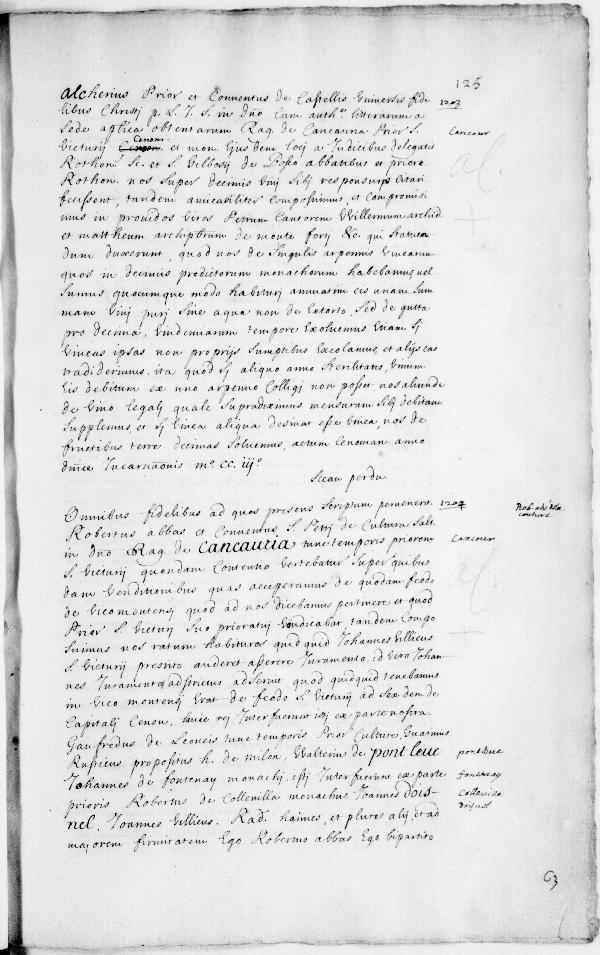 125
alcherius Prior et Conventus de Castellis Universis fide
1203
libus Christj p. L. J. S. in dno Cum auth.e litterarum a
Sede aplica obtentarum Rag. de Cancauria Prior S.
Cancour
Victurij Cenom. et mon. Ejus dem locj a Judicibus delegatis
Rothon. Sc. et S. Gildasij de Posto abbatibus et priore
Rothon. nos super decimis Vinj sibj responsuros Citari
fecissent, tandem amicabiliter Composuimus, et Compromisi
mus in providos viros Petrum Cantorem Willermum archid.
et mattheum archipbrum de monte forti &c. qui statuen
dum duxerunt, quod nos de singulis arpennis Vinearum
quos in decimis predictorum monachorum habebamus, vel
sumus quocumque modo habiturj annuatim eis unam sum
mam Vinj purj sine aqua non de Extorto, sed de gutta
pro decima, Vindemiarum tempore Exoluemus Etiam sj
Vineas ipsas non proprijs sumptibus Excolamus, et alijs eas
tradiderimus. ita quod sj aliquo anno sterilitatis, Vinum
Eis debitum ex uno arpenno Colligj non possit, nos aliunde
de Vino legalj quale supradiximus mensuram sibj debitam
supplemus, et sj Vinea aliqua desinat esse Vinea, nos de
fructibus terre decimas soluemus, actum Cenoman. anno
dnice Incarnaonis m.o cc. iij.o
Sceau perdu.
Omnibus fidelibus ad quos presens scriptum pervenerit.
1204
Rob. abé de la
couture
Robertus abbas et Conventus S. Petrj de Cultura Salt.
in dno Rag. de Cancauria tunc temporis priorem
Cancour
S. Victurij quondam Contentio vertebatur super quibus
dam Venditionibus quas acceperamus de quodam feodo
de Vico montensj quod ad nos dicebamus pertinere et quod
Prior S. Victurj suo prioratuj Vindicabat, tandem Compo
suimus nos ratum habituros quidquid Johannes Villicus
S. Victurij presnto auderet asserere Juramento, id Vero Johan
nes Juramento adstrictus adseruit quod quidquid tenebamus
in Vico montensj Erat de feodo S. Victurij ad sex den. de
Capitalj Censu, huic rej Interfuerunt istj ex parte nostra.
Gaufredus de Leoneis tunc temporis Prior Culture, Guarinus
Rusticus propositus h. de milon, Walterus de pont leue
pontleue
Johannes de fontenay monachj. istj Interfuerunt ex parte
fontenay
prioris Robertus de Collevilla monachus Joannes dois-
Collevilla
doisnel
nel. Joannes Villicus. Rad. haimes, et plures alij, et ad
majorem firmitatem Ego Robertus abbas Ego bipartito
63